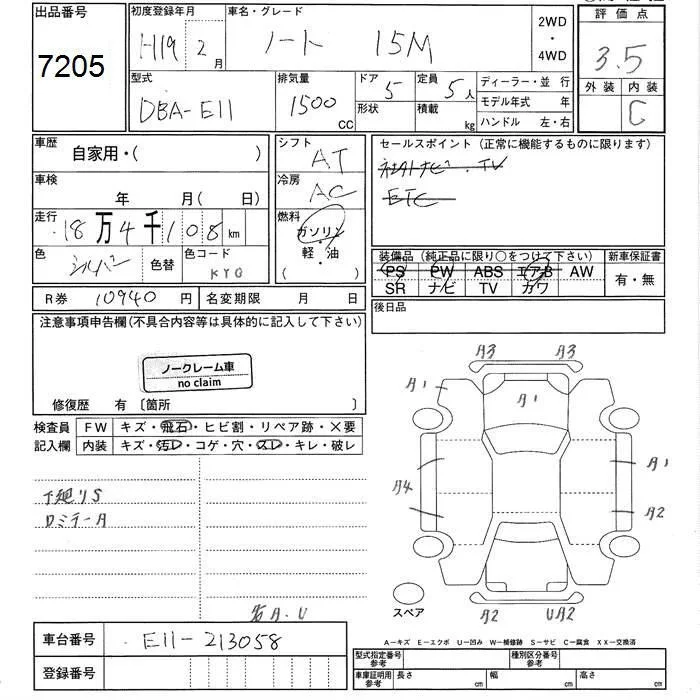 出品番号
7205
初度登録年月
H19 2月
車名・グレード
ノート 15M
2WD
・
4WD
評価点
3.5
外装 内装
C
型式
DBA-E11
排気量
1500 CC
ドア 5
形状
定員 5人
積載 kg
ディーラー・並行
モデル年式 年
ハンドル 左・右
車歴
自家用・( )
シフト
AT
セールスポイント (正常に機能するものに限ります)
TV
ETC
車検
年 月( 日)
冷房
AC
走行
18万4千108km
燃料
ガソリン
軽・油
( )
色
シルバー
色替
色コード
KY0
装備品 (純正品に限り○をつけて下さい)
PS PW ABS エアB AW
SR ナビ TV カワ
新車保証書
有・無
R券 10940円
名変期限 月 日
後日品
注意事項申告欄(不具合内容等は具体的に記入して下さい)
ノークレーム車
no claim
修復歴 有 〔箇所 〕
検査員
記入欄
FW キズ・飛石・ヒビ割・リペア跡・×要
内装 キズ・汚レ・コゲ・穴・スレ・キレ・破レ
下廻りS
ロミラーA
各A.U
A3 A3
A1 A1
A4 A1
A2
スペア
A2 UA2
A－キズ E－エクボ U－凹み W－補修跡 S－サビ C－腐食 XX－交換済
車台番号 E11-213058
登録番号
型式指定番号
参考
種別区分番号
参考
車庫証明用
参考
長さ cm
幅 cm
高さ cm